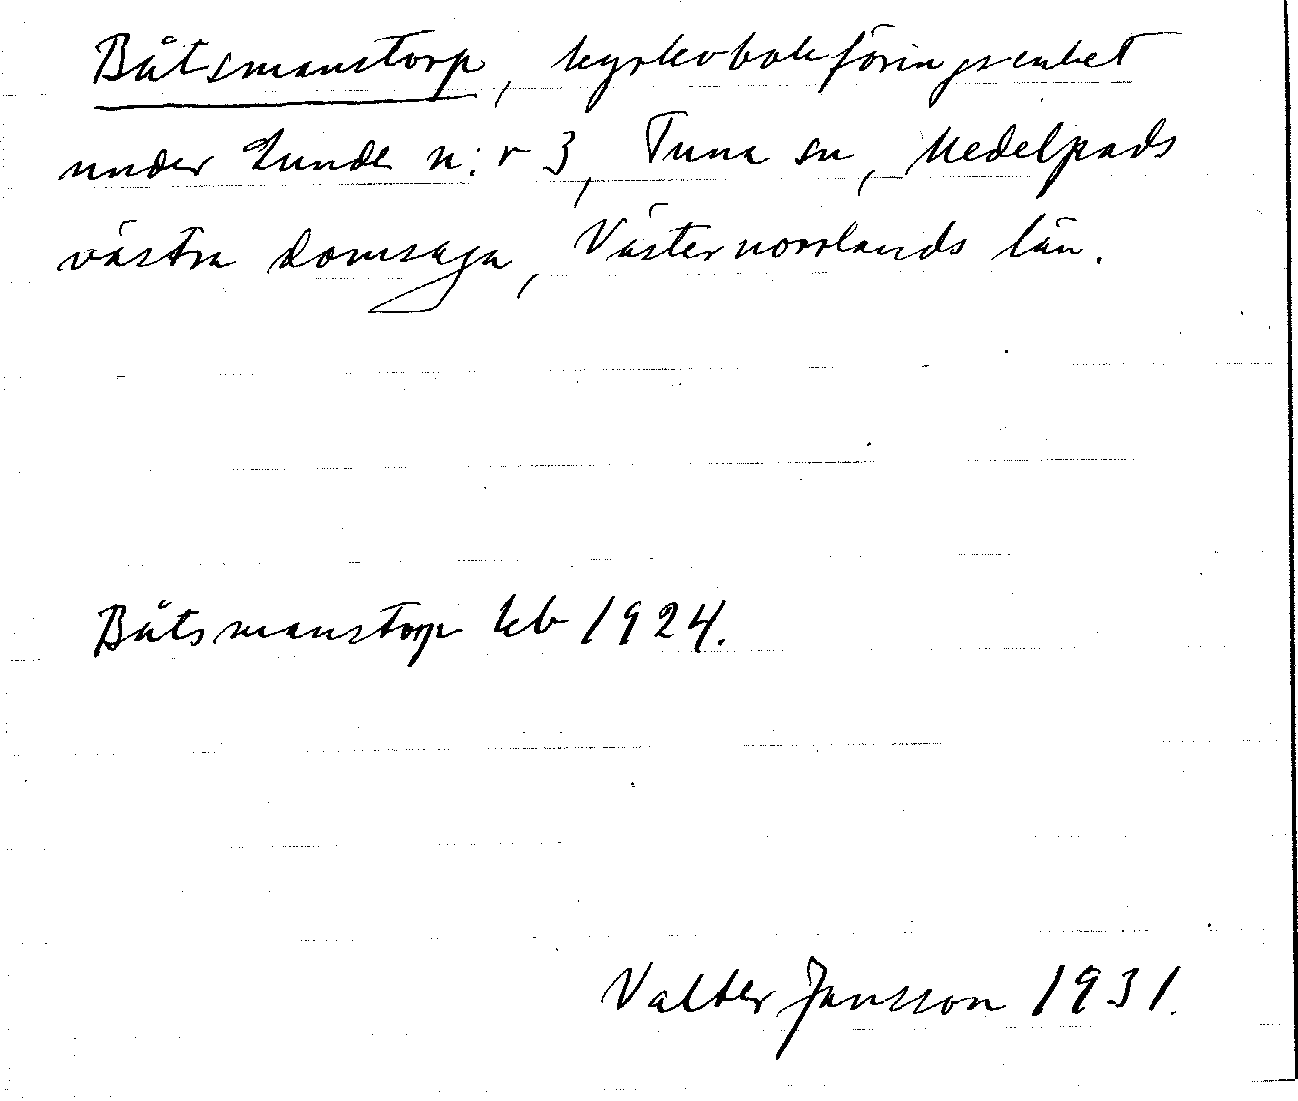 Båtsmanstorp, kyrkobokföringsenhet
under Lunde n:r 3, Tuna sn, Medelpads
västra domsaga, Västernorrlands län.
Båtsmanstorp kb 1924.
Valter Jansson 1931.